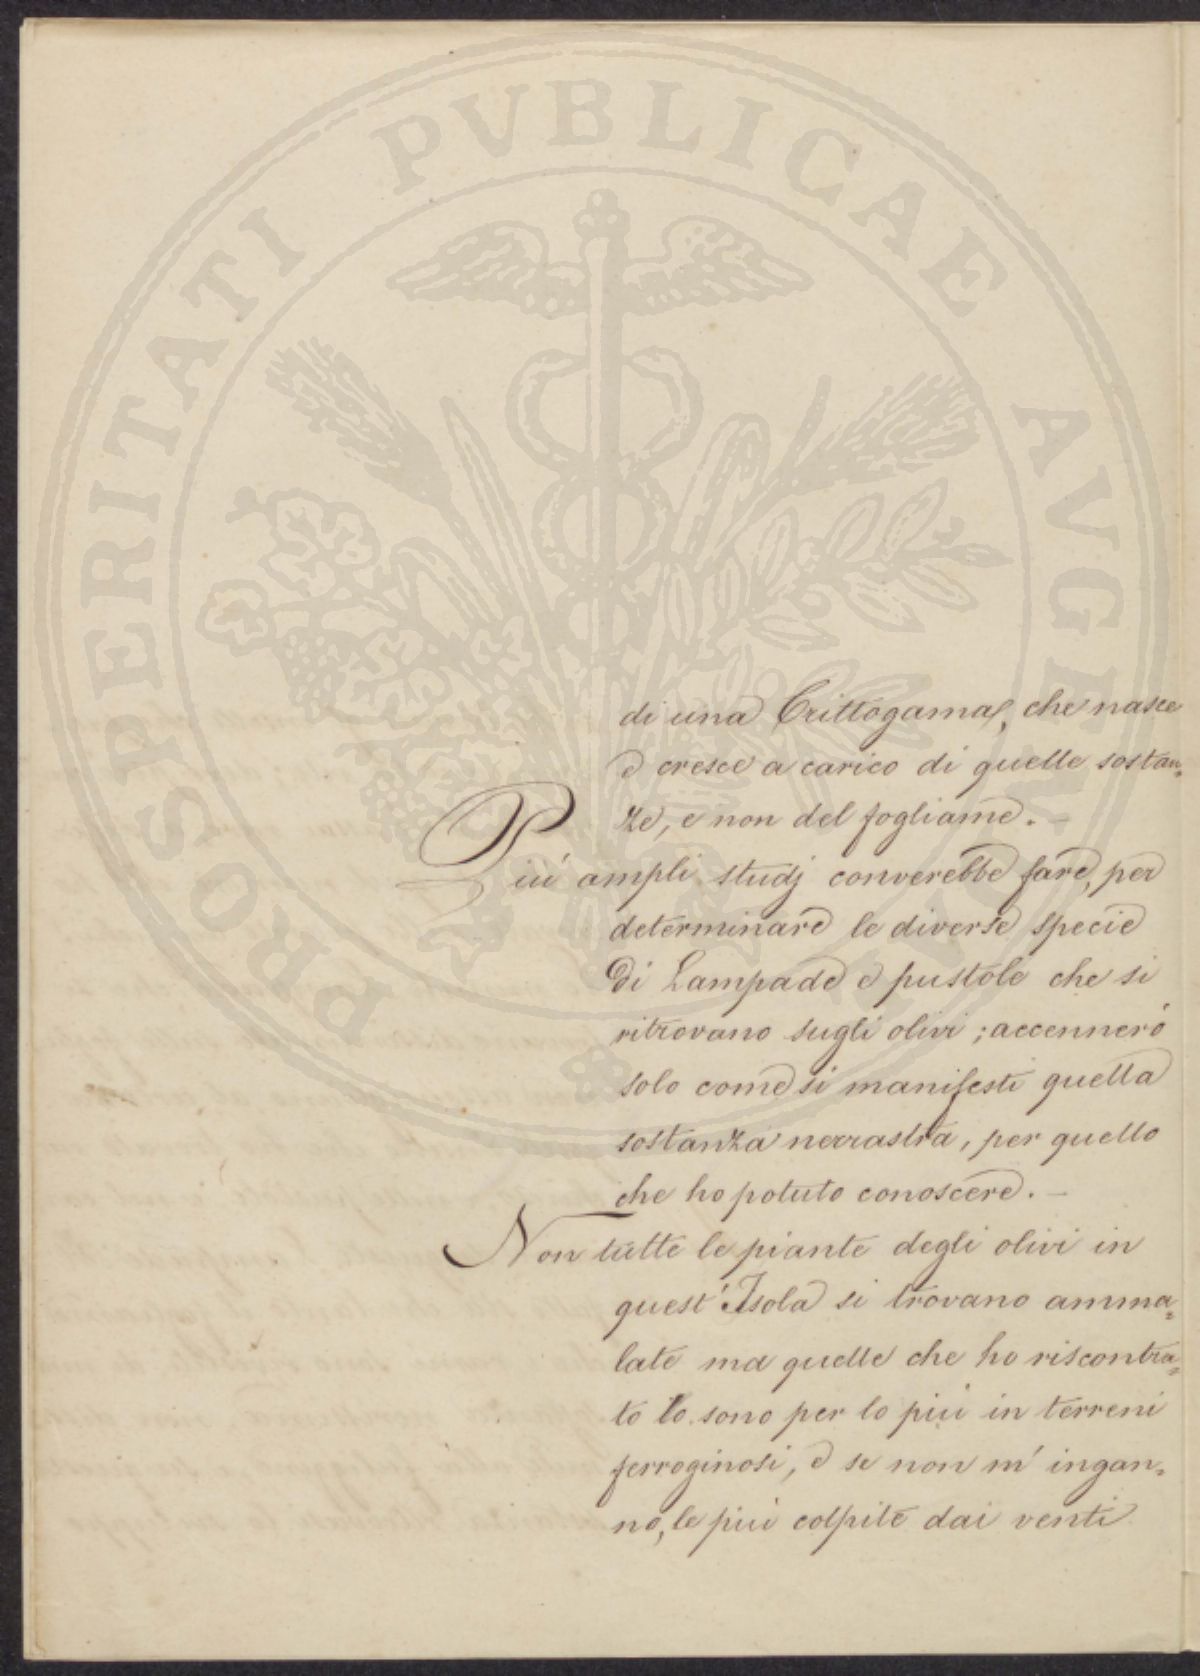 PROSPERITATI PVBLICAE AVGENDAE
di una Crittogama, che nasce
e cresce a carico di quelle sostan=
ze, e non del fogliame. –
Più ampli studj converebbe fare, per
determinare le diverse specie
di Lampade e pustole che si
ritrovano sugli olivi; accennerò
solo come si manifesti quella
sostanza nerrastra, per quello
che ho potuto conoscere. –
Non tutte le piante degli olivi in
quest'Isola si trovano amma=
late ma quelle che ho riscontra=
to lo sono per lo più in terreni
ferroginosi, e se non m'ingan=
no, le più colpite dai venti